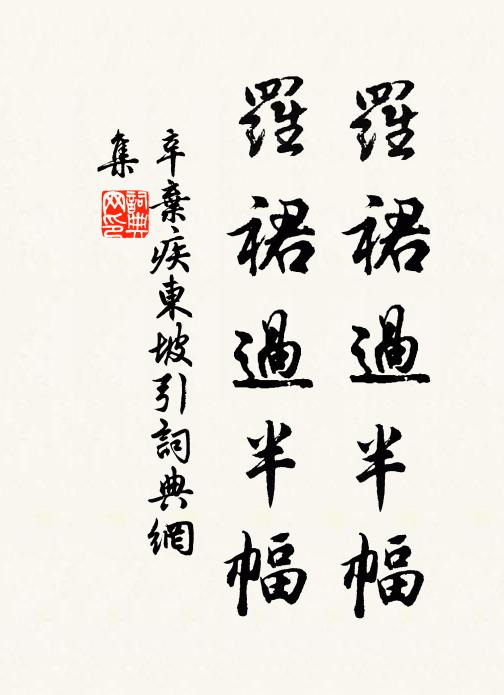 羅裙過半幅
羅裙過半幅
辛棄疾東坡引詞典網
集
詞典
网印